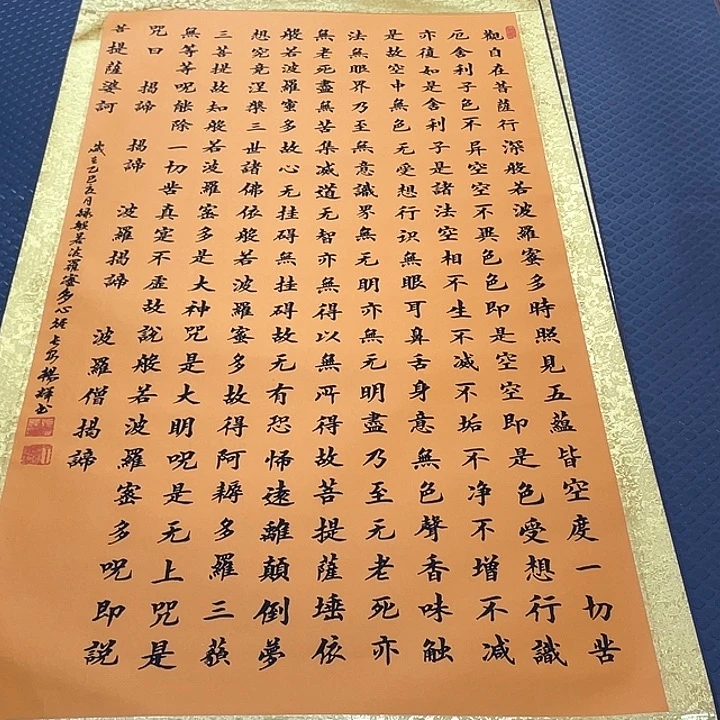 觀自在菩薩行深般若波羅蜜多時照見五蘊皆空度一切苦
厄舍利子色不异空空不異色色即是空空即是色受想行識
亦復如是舍利子是諸法空相不生不减不垢不净不增不减
是故空中無色无受想行识無眼耳鼻舌身意無色聲香味触
法無眼界乃至無意識界無无明亦無无明盡乃至无老死亦
無老死盡無苦集减道无智亦無得以無所得故菩提薩埵依
般若波羅蜜多故心无挂碍無挂碍故无有恐怖遠離顛倒夢
想究竟涅槃三世諸佛依般若波羅蜜多故得阿耨多羅三藐
三菩提故知般若波羅蜜多是大神咒是大明呪是无上咒是
無等等呪能除一切苦真寔不虛故說般若波羅蜜多呪即説
咒曰 揭諦 揭諦 波羅揭諦 波羅僧揭諦
菩提薩婆訶
歲 乙巳五月録般若波羅蜜多心經 楊輝书